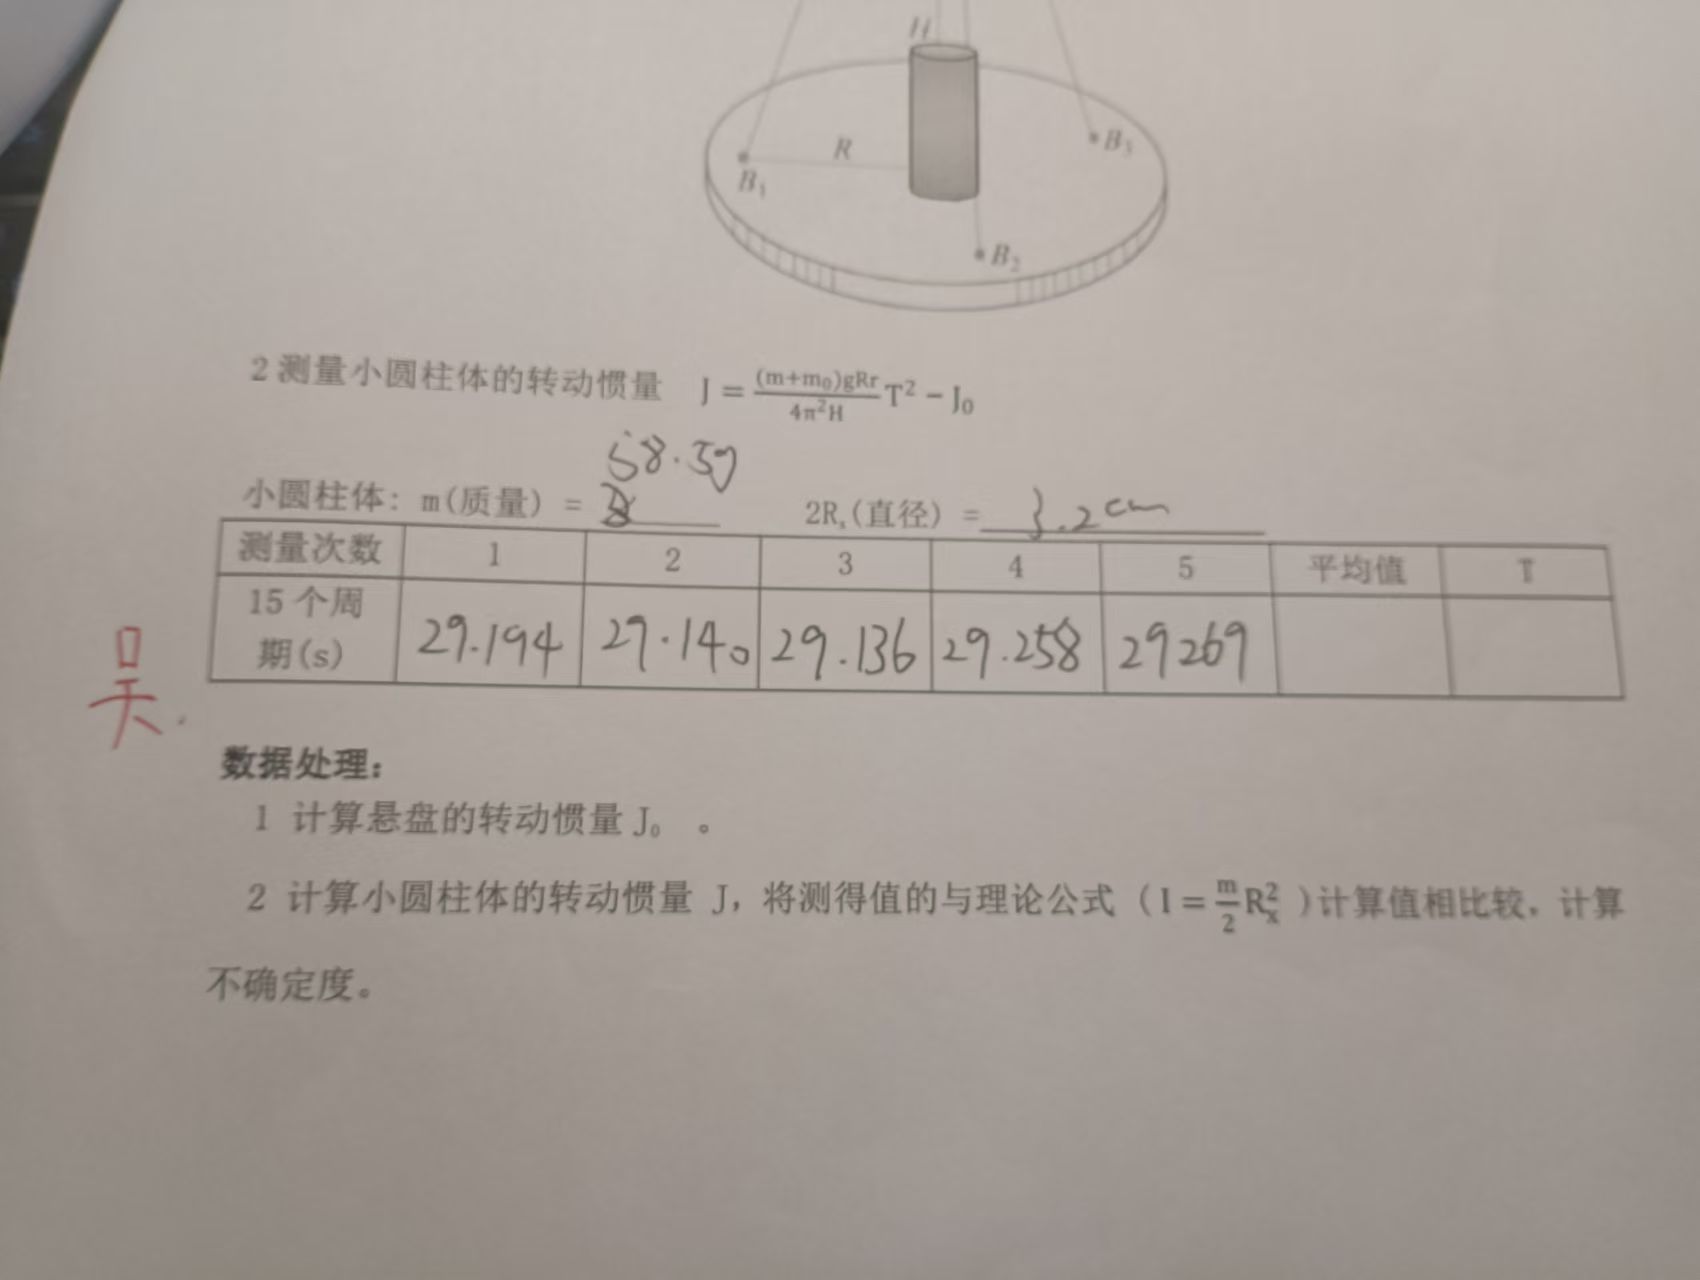 H
R
B₁
B₂
B₃
2 测量小圆柱体的转动惯量 J = (m+m₀)gRr/4π²H T² − J₀
58.5g
小圆柱体: m(质量) = 2Rₓ(直径) = 3.2cm
测量次数 1 2 3 4 5 平均值 T
15 个周期(s) 29.194 29.140 29.136 29.258 29269
吴
数据处理:
1 计算悬盘的转动惯量 J₀ 。
2 计算小圆柱体的转动惯量 J,将测得值的与理论公式 ( I = m/2 Rₓ² )计算值相比较,计算
不确定度。